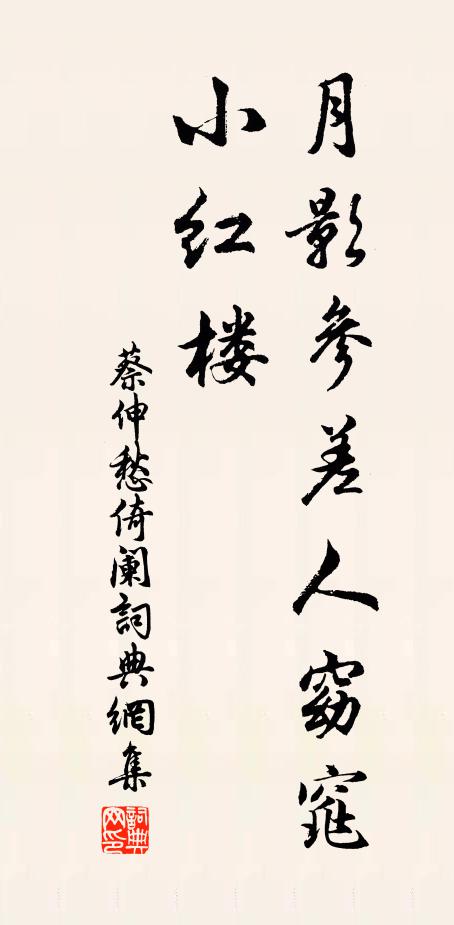 月影參差人窈窕
小红楼
蔡伸愁倚阑詞典網集
詞典網印